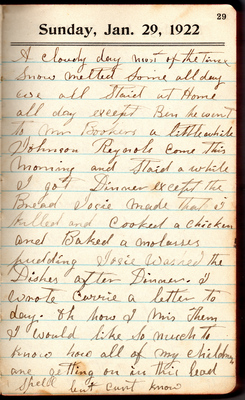 29
Sunday, Jan. 29, 1922
A cloudy day most of the time
Snow melted some all day
we all Staid at Home
all day except Ben he went
to Mr Bookers a little while
Johnson Reynole come this
morning and Staid a while
I got Dinner except the
Bread Josie made that I
killed and Cooked a chicken
and Baked a molasses
pudding Josie Washed the
Dishes after Dinner. I
wrote Carrie a letter to
day. Oh how I mis them
I would like So much to
Know how all of my children
are getting on in this bad
Spell but cant know